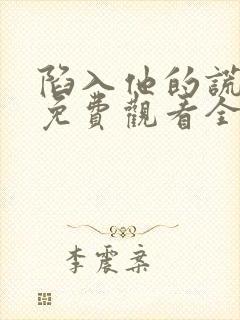 陷入他的謊
免費觀看全
李震案